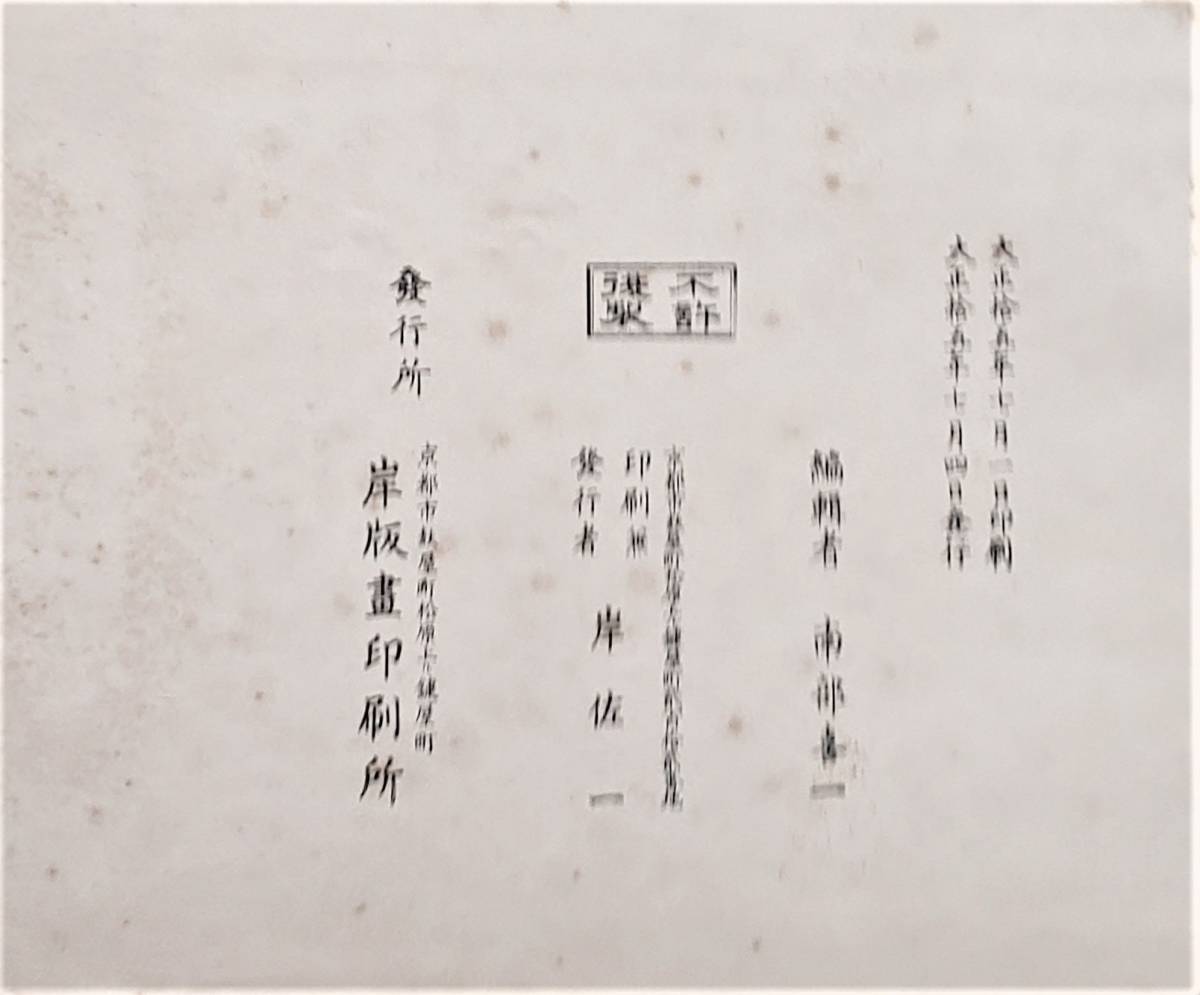 大正拾五年十月一日印刷
大正拾五年十月四日發行
編輯者 南部
不許
複製
京都市
印刷兼
發行者
岸佐一
發行所
京都市麩屋町松原上ル鍵屋町
岸版畫印刷所